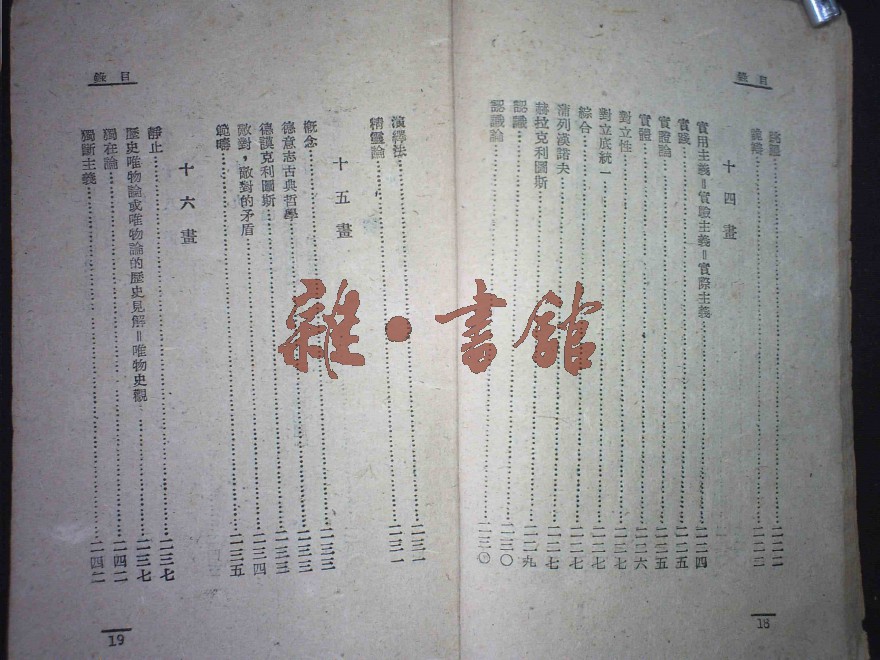 目錄
十四畫
實用主義=實驗主義=實際主義……二二四
實踐……二二五
實證論……二二五
實體……二二六
對立性……二二七
對立底統一……二二七
綜合……二二七
蒲列漢諾夫……二二七
赫拉克利圖斯……二二九
認識……二三〇
認識論……二三〇
18
目錄
演繹法……二三一
精靈論……二三一
十五畫
概念……二三三
德意志古典哲學……二三三
德謨克利圖斯……二三三
敵對，敵對的矛盾……二三四
範疇……二三五
十六畫
靜止……二三七
歷史唯物論或唯物論的歷史見解=唯物史觀……二三七
獨在論……二四二
獨斷主義……二四二
19
雜·書館